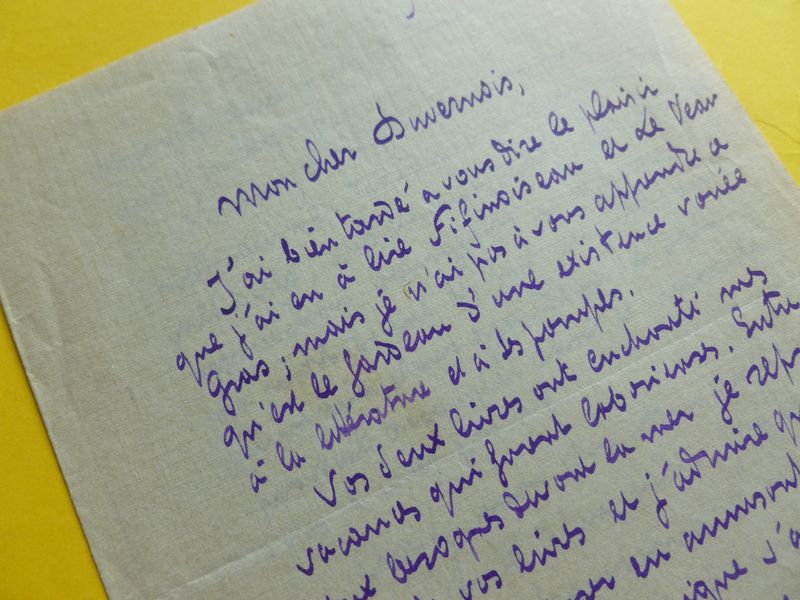 Mon cher Duvernois,
J'ai bien tardé à vous dire le plaisir
que j'ai eu à lire Fifinoiseau et Le Veau
Gras ; mais je n'ai pas à vous apprendre ce
qu'est le fardeau d'une existence vouée
à la littérature et à ses pompes.
Vos deux livres ont enchanté mes
vacances qui furent laborieuses. Entre
besognes devant la mer je
vos livres et j'admire
en amusant